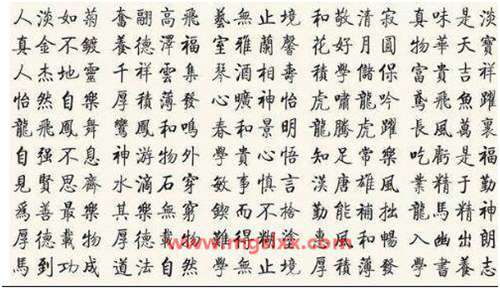 人淡如菊 奮翮高飛 藝無止境 和敬清寂 真味是淡
真金不鍍 養德澤福 室雅蘭馨 花好月圓 物華天寶
人杰地靈 千祥雲集 琴酒相壽 積學儲保 富貴吉祥
怡然自樂 厚積薄發 心曠神怡 虎嘯龍吟 鳶飛魚躍
龍飛鳳舞 鸞鳳和鳴 春和景明 龍騰虎躍 長風萬裏
自强不息 神游物外 學貴心悟 知足常樂 吃虧是福
見賢思齊 水滴石穿 敏事慎言 漢唐雄風 業精于勤
爲善最樂 其樂無窮 鍥而不捨 勤能補拙 龍馬精神
厚德載物 難得糊塗 惠風和暢 入幽出朗
馬到功成 道法自然 學無止境 厚積薄發 學書養志
www.mgdlxx.com